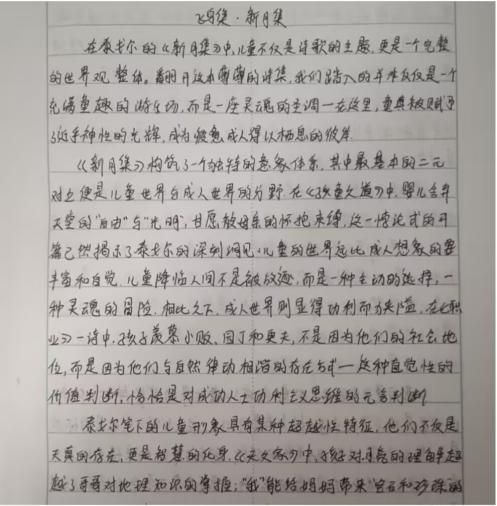 飞鸟集·新月集
在泰戈尔的《新月集》中,儿童不仅是诗歌的主题,更是一个完整
的世界观整体。翻开这本薄薄的诗集,我们踏入的并非仅仅是一个
充满童趣的游乐场,而是一座灵魂的圣调一在这里,童真被赋予
了近乎神性的光辉,成为疲惫成人得以栖息的彼岸.
《新月集》构筑了一个独特的意象体系,其中最基本的二元
对立便是儿童世界与成人世界的分野.在《孩童之道》中,婴儿舍弃
天堂的"自由"与"光明",甘愿被母亲的怀抱束缚,这一悖论式的开
篇已然揭示了泰戈尔的深刻洞见:儿童的世界远比成人想象的要
丰富和自觉.儿童降临人间不是被放逐,而是一种主动的选择,一
种灵魂的冒险.相比之下,成人世界则显得功利而狭隘.在《职
业》一诗中,孩子羡慕小贩、园丁和更夫,不是因为他们的社会地
位,而是因为他们与自然律动相谐的存在方式—这种直觉性的
价值判断,恰恰是对成功人士功利主义思维的无言判断
泰戈尔笔下的儿童形象具有某种超越性特征,他们不仅是
天真的存在,更是智慧的化身.《天文家》中,孩子对月亮的理解超
越了哥哥对地理知识的掌握;"我"能给妈妈带来"宝石和珍珠的